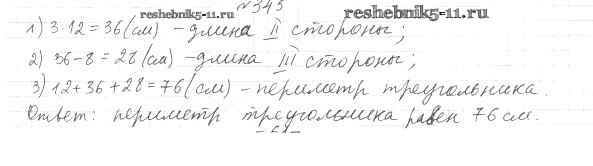 №343
reshebnik5-11.ru
reshebnik5-11.ru
1) 3·12=36(см) -длина II стороны;
2) 36-8=28(см) -длина III стороны;
3) 12+36+28=76(см) - периметр треугольника.
Ответ: периметр треугольника равен 76 см.